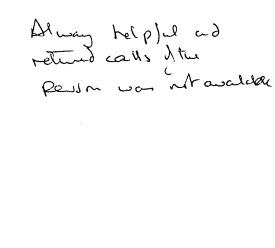 Always helpful and
returned calls if the
person was not available